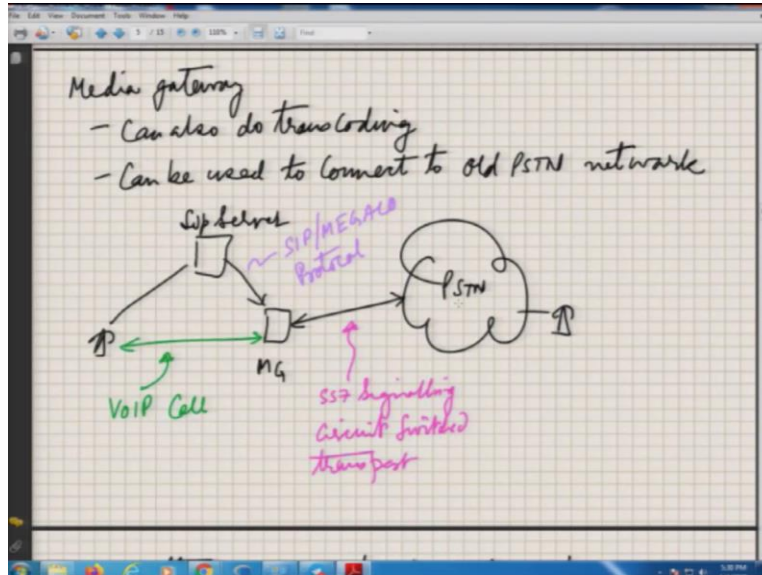 File Edit View Document Tools Window Help
3 / 15 110% Find
Media gateway
- Can also do transcoding
- Can be used to connect to old PSTN network
Sip Server
SIP/MEGACO
Protocol
PSTN
MG
VOIP Call
SS7 Signalling
Circuit Switched
transport
5:30 PM